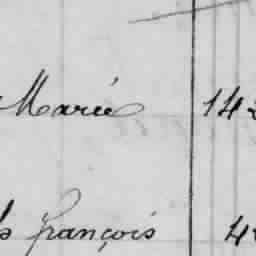 Marie 142
françois